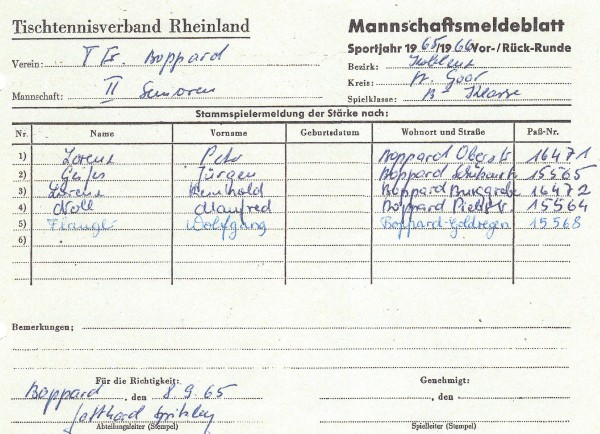 Tischtennisverband Rheinland
Mannschaftsmeldeblatt
Sportjahr 1965/1966 Vor-/Rück-Runde
Verein: Boppard
Bezirk: Koblenz
Kreis: St. Goar
Mannschaft: II Senioren
Spielklasse: B-Klasse
Stammspielermeldung der Stärke nach:
Nr. Name Vorname Geburtsdatum Wohnort und Straße Paß-Nr.
1) Lorenz Peter Boppard Oberstr 16471
2) Jürgen Boppard 15565
3) Lorenz Reinhold Boppard Burggrabe 16472
4) Noll Manfred Boppard 15564
5) Wolfgang Boppard-Goldregen 15568
6)
Bemerkungen:
Für die Richtigkeit:
Genehmigt:
Boppard, den 8.9.65
, den
Gotthard
Abteilungsleiter (Stempel)
Spielleiter (Stempel)